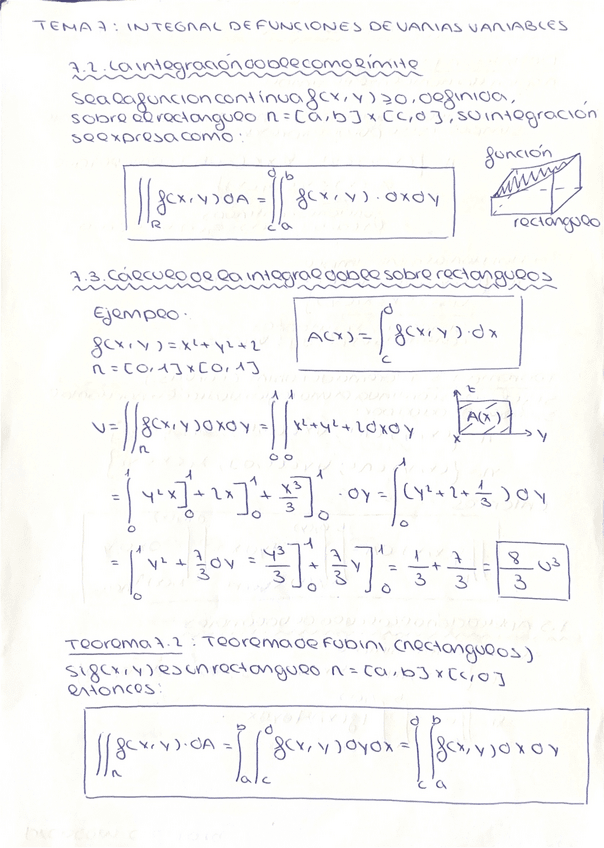 TEMA 7: INTEGRAL DE FUNCIONES DE VARIAS VARIABLES
7.2. La integración doble como límite
Sea la función continua f(x,y) ≥ 0, definida,
sobre el rectangulo R = [a,b] x [c,d], su integración
se expresa como:
función
∬_R f(x,y) dA = ∫_c^d ∫_a^b f(x,y) · dx dy
rectangulo
7.3. Cálculo de la integral doble sobre rectangulos
Ejemplo:
f(x,y) = x² + y² + 2
R = [0,1] x [0,1]
A(x) = ∫_c^d f(x,y) · dx
V = ∬_R f(x,y) dx dy = ∫_0^1 ∫_0^1 x² + y² + 2 dx dy
z
A(x)
x
y
= ∫_0^1 y²x]_0^1 + 2x]_0^1 + x³/3]_0^1 · dy = ∫_0^1 (y² + 2 + 1/3) dy
= ∫_0^1 y² + 7/3 dy = y³/3]_0^1 + 7/3 y]_0^1 = 1/3 + 7/3 = 8/3 u³
Teorema 7.2: Teorema de Fubini (rectangulos)
Si f(x,y) es un rectangulo R = [a,b] x [c,d]
entonces:
∬_R f(x,y) · dA = ∫_a^b ∫_c^d f(x,y) dy dx = ∫_c^d ∫_a^b f(x,y) dx dy